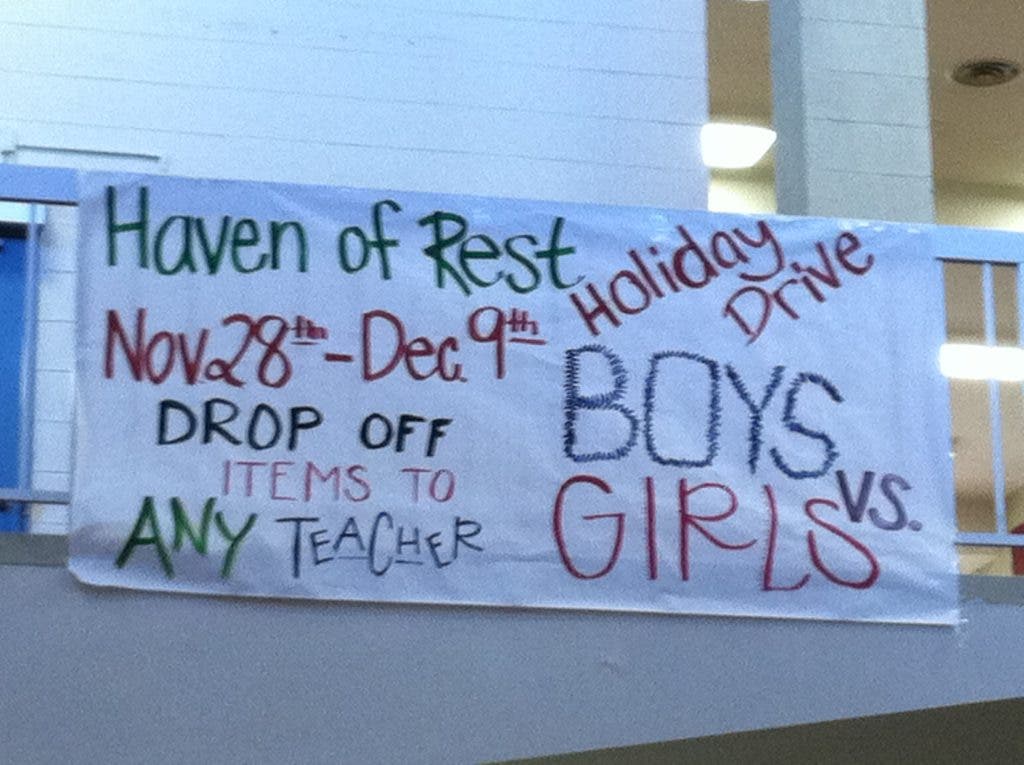 Haven of Rest
Holiday
Drive
Nov. 28th - Dec. 9th
DROP OFF
ITEMS TO
ANY TEACHER
BOYS
VS.
GIRLS